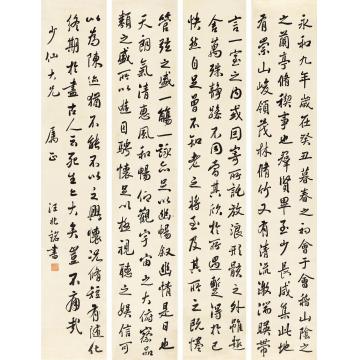 永和九年歲在癸丑暮春之初會于會稽山陰之
之蘭亭脩稧事也羣賢畢至少長咸集此地
有崇山峻領茂林脩竹又有清流激湍暎帶
言一室之內或因寄所託放浪形骸之外雖趣
舍萬殊靜躁不同當其欣於所遇蹔得於己
快然自足曾不知老之將至及其所之既惓
管弦之盛一觴一詠亦足以暢敘幽情是日也
天朗氣清惠風和暢仰觀宇宙之大俯察品
類之盛所以遊目騁懷足以極視聽之娛信可
以為陳迹猶不能不以之興懷況脩短有隨化
終期於盡古人云死生亦大矣豈不痛哉
少仙大兄 屬正 汪兆銘書